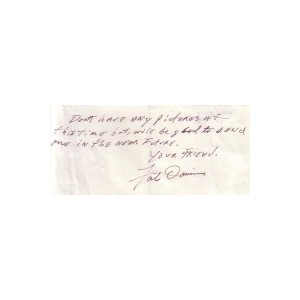 Dont have any pictures at
this time but, will be glad to send
one in the near future.
Your Friend.
Fats Domino